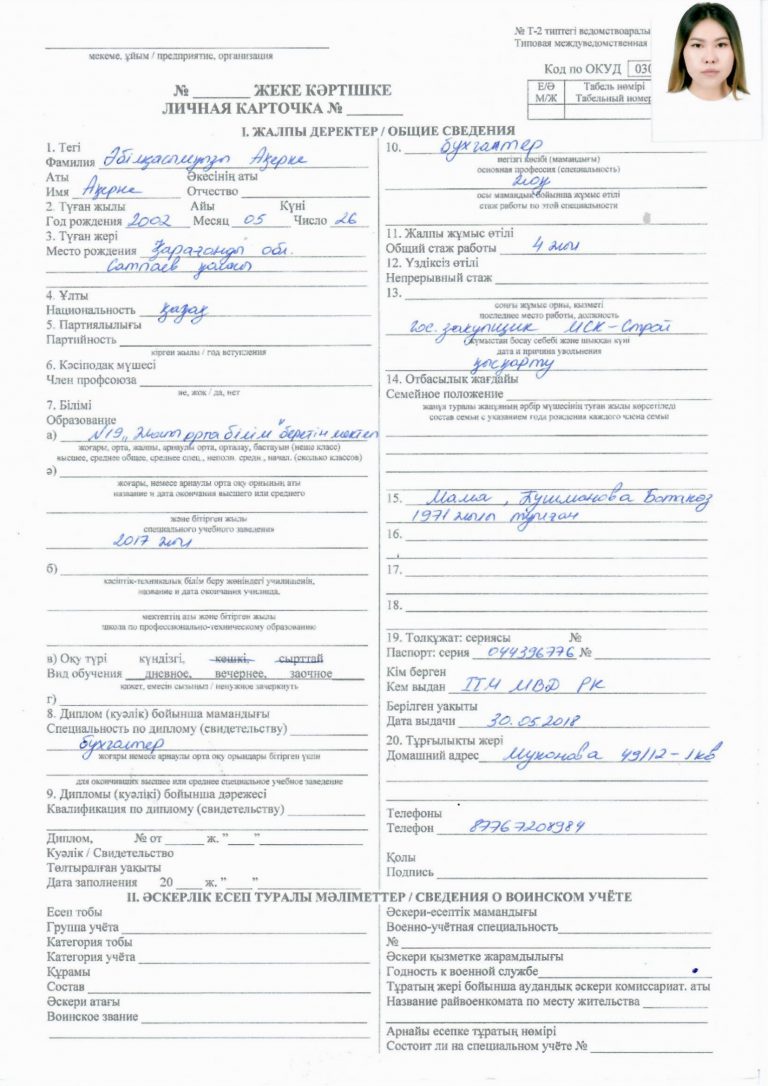 № Т-2 типтегі ведомствоаралы
Типовая междуведомственная
мекеме, ұйым / предприятие, организация
Код по ОКУД 030
№ ЖЕКЕ КӘРТІШКЕ
ЛИЧНАЯ КАРТОЧКА №
Е/Ә Табель нөмірі
М/Ж Табельный номер
I. ЖАЛПЫ ДЕРЕКТЕР / ОБЩИЕ СВЕДЕНИЯ
1. Тегі
Фамилия Әбілқасымқызы Ақерке
Аты Әкесінің аты
Имя Ақерке Отчество
2. Туған жылы Айы Күні
Год рождения 2002 Месяц 05 Число 26
3. Туған жері
Место рождения Қарағанды обл.
Сатпаев қаласы
4. Ұлты
Национальность қазақ
5. Партиялылығы
Партийность
кірген жылы / год вступления
6. Кәсіподақ мүшесі
Член профсоюза
ие, жоқ / да, нет
7. Білімі
Образование
а) №19 "Жалпы орта білім" беретін мектеп
жоғары, орта, жалпы, арнаулы орта, орталау, бастауын (неше класс)
высшее, среднее общее, среднее спец., непозн. средн., начал. (сколько классов)
ә)
жоғары, немесе арнаулы орта оқу орнының аты
название и дата окончания высшего или среднего
және бітірген жылы
специального учебного заведения
2017 жыл
б)
кәсіптік-техникалық білім беру жөніндегі училищенін,
название и дата окончания училища,
мектептің аты және бітірген жылы
школа по профессионально-техническому образованию
в) Оқу түрі күндізгі, кешкі, сырттай
Вид обучения дневное, вечернее, заочное
қажет, емесін сызыңыз / ненужное зачеркнуть
г)
8. Диплом (куәлік) бойынша мамандығы
Специальность по диплому (свидетельству)
бухгалтер
жоғары немесе арнаулы орта оқу орындары бітірген үшін
для окончивших высшее или среднее специальное учебное заведение
9. Дипломы (куәлікі) бойынша дәрежесі
Квалификация по диплому (свидетельству)
Диплом, № от ж. ” ”
Куәлік / Свидетельство
Толтыралған уақыты
Дата заполнения 20 ж. ” ”
10. бухгалтер
негізгі кәсібі (мамандығы)
основная профессия (специальность)
жоқ
осы мамандық бойынша жұмыс өтілі
стаж работы по этой специальности
11. Жалпы жұмыс өтілі
Общий стаж работы 4 жыл
12. Үздіксіз өтілі
Непрерывный стаж
13.
соңғы жұмыс орны, қызметі
последнее место работы, должность
гос. закупщик МСК-Строй
жұмыстан босау себебі және шыққан күні
дата и причина увольнения
қысқарту
14. Отбасылық жағдайы
Семейное положение
жанұя туралы жанұяның әрбір мүшесінің туған жылы көрсетіледі
состав семьи с указанием года рождения каждого члена семьи
15. Мама, Тушманова Ботакөз
1971 жылы туылған
16.
17.
18.
19. Толқұжат: сериясы №
Паспорт: серия 044396776 №
Кім берген
Кем выдан ІІМ МВД РК
Берілген уақыты
Дата выдачи 30.05.2018
20. Тұрғылықты жері
Домашний адрес Муканова 49/12-1кв
Телефоны
Телефон 87767208984
Қолы
Подпись
II. ӘСКЕРЛІК ЕСЕП ТУРАЛЫ МӘЛІМЕТТЕР / СВЕДЕНИЯ О ВОИНСКОМ УЧЁТЕ
Есеп тобы
Группа учёта
Категория тобы
Категория учёта
Құрамы
Состав
Әскери атағы
Воинское звание
Әскери-есептік мамандығы
Военно-учётная специальность
№
Әскери қызметке жарамдылығы
Годность к военной службе
Тұратың жері бойынша аудандық әскери комиссариат. аты
Название райвоенкомата по месту жительства
Арнайы есепке тұратың нөмірі
Состоит ли на специальном учёте №